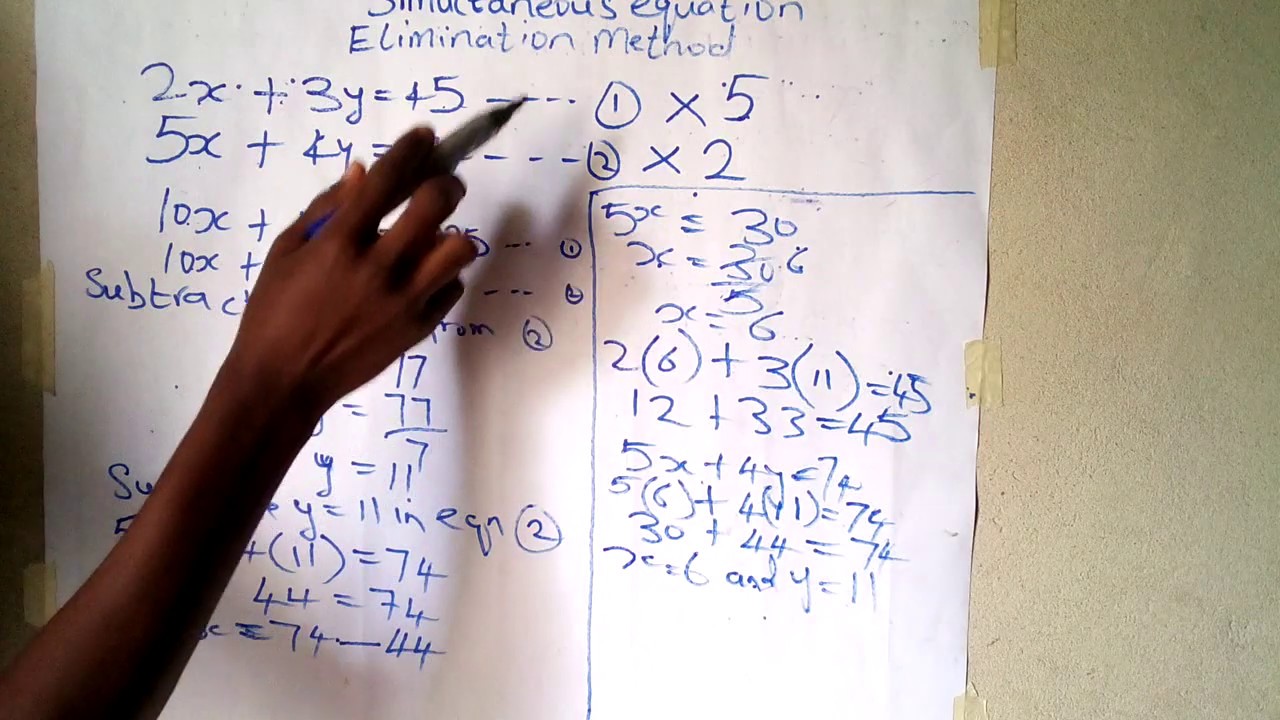 Simultaneous equation
Elimination Method
2x + 3y = 45 ---- ① × 5
5x + 4y = ---- ② × 2
10x + 25 --- ①
10x + --- ②
Subtract from ②
77
y = 77
7
y = 11
y = 11 in eqn ②
+ (11) = 74
44 = 74
x = 74 — 44
5x = 30
x = 30 6
5
x = 6
2(6) + 3(11) = 45
12 + 33 = 45
5x + 4y = 74
5(6) + 4(11) = 74
30 + 44 = 74
x = 6 and y = 11